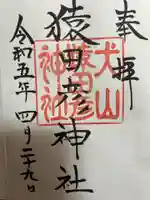 奉拝
猿田彦神社
犬山
猿田彦
神社
令和五年四月二十九日